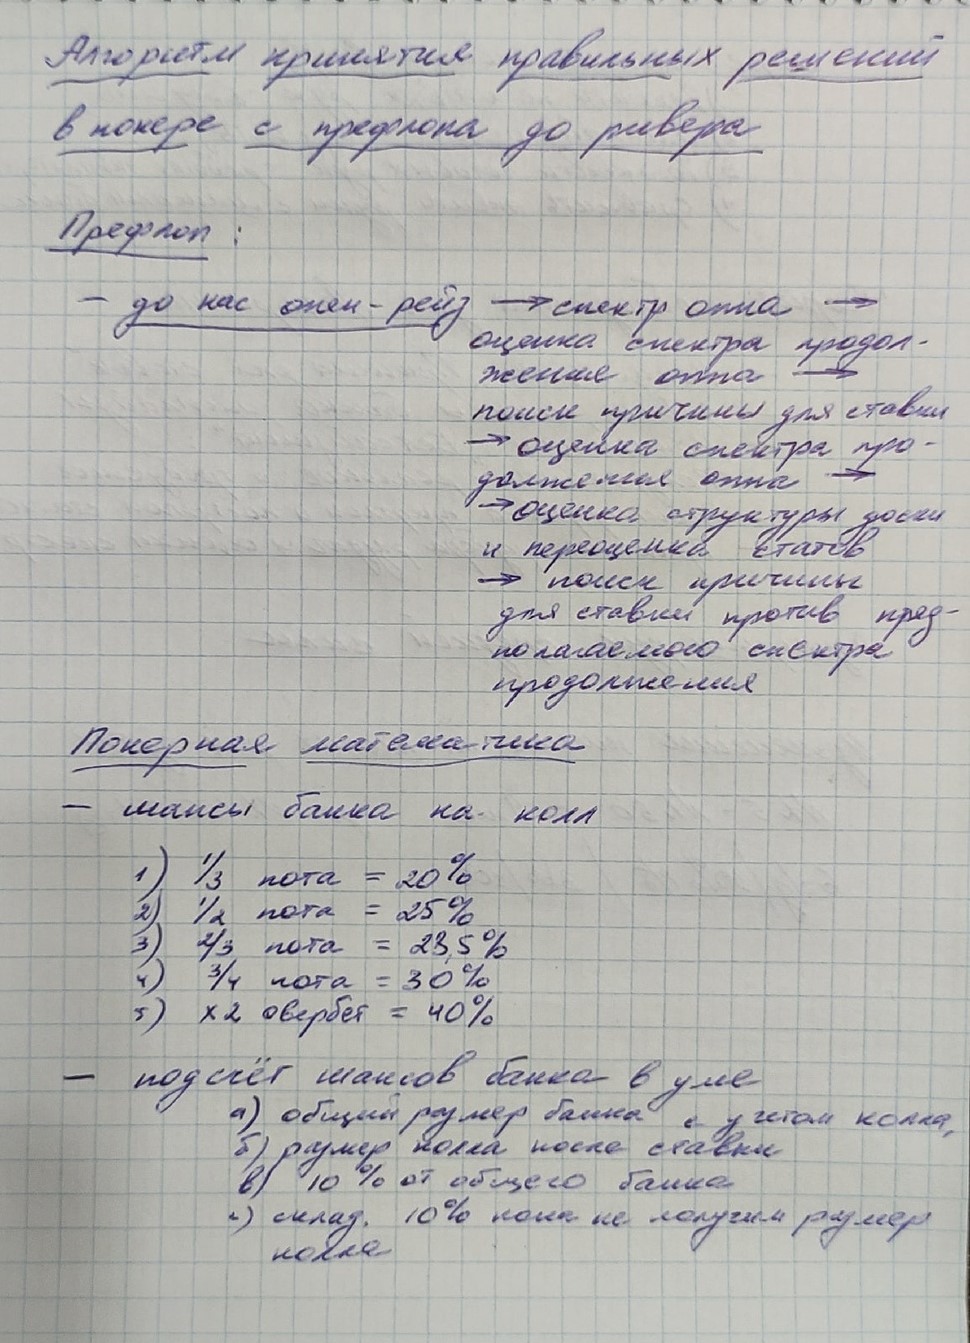 Алгоритм принятия правильных решений
в покере с префлопа до ривера
Префлоп :
— до нас опен-рейз → спектр оппа →
оценка спектра продол-
жения оппа →
поиск причины для ставки
→ оценка спектра про-
должения оппа →
→ оценка структуры доски
и переоценка статов
→ поиск причины
для ставки против пред-
полагаемого спектра
продолжения
Покерная математика
— шансы банка на колл
1) 1/3 пота = 20%
2) 1/2 пота = 25%
3) 2/3 пота = 28,5%
4) 3/4 пота = 30%
5) х2 овербет = 40%
— подсчёт шансов банка в уме
а) общий размер банка с учетом колла,
б) размер колла после ставки
в) 10% от общего банка
г) склад. 10% пока не получим размер
колла